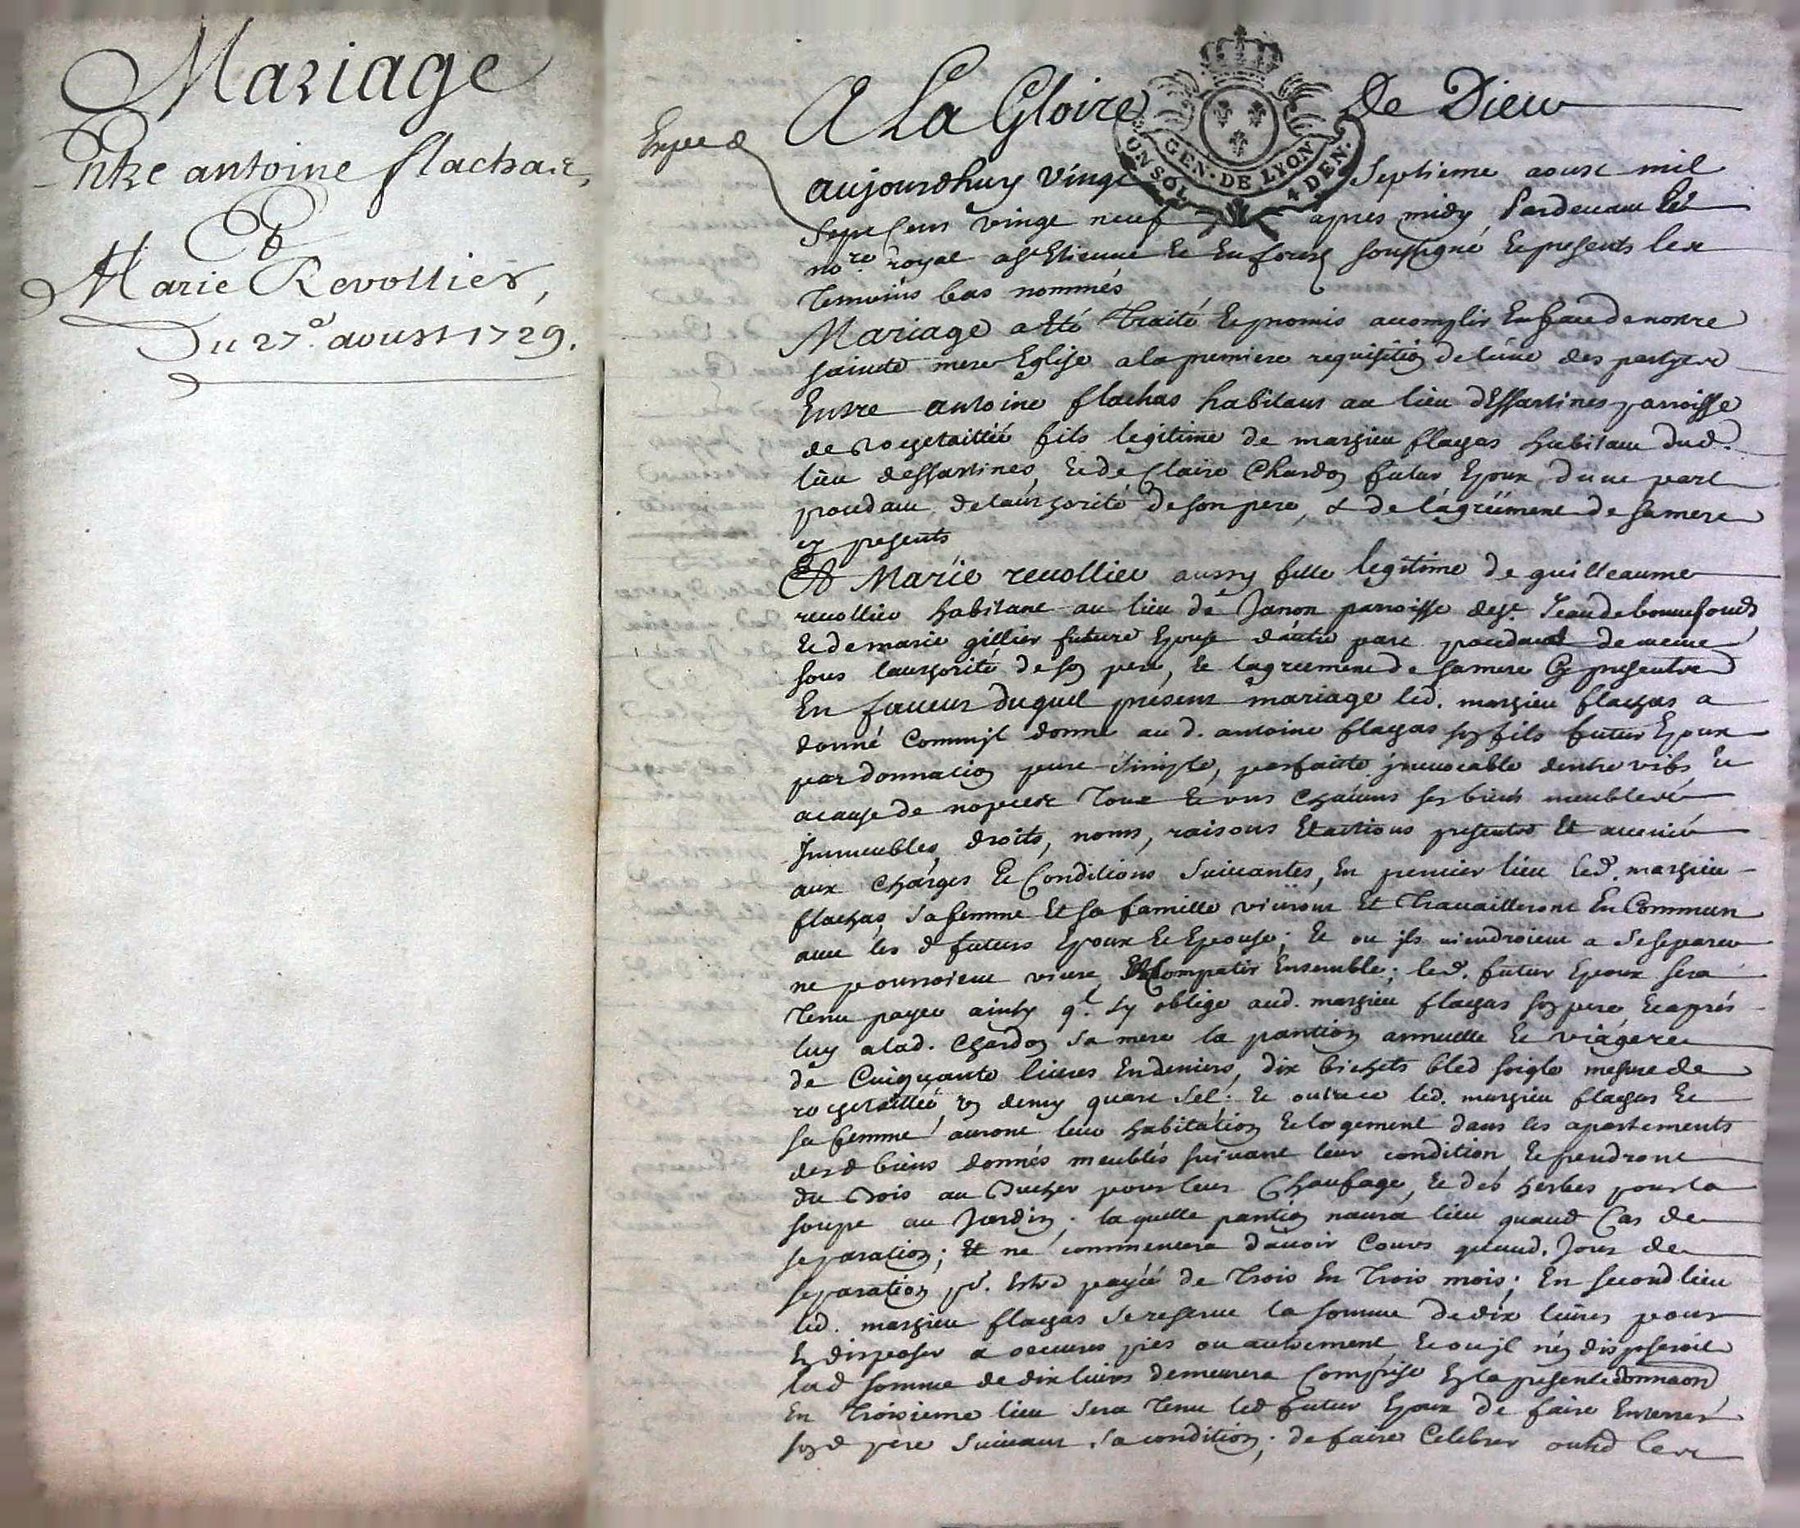 Mariage
Entre antoine flachat,
Et
Marie Revollier,
Du 27e. aoust 1729.
Expedé
A La Gloire De Dieu
GEN. DE LYON
UN SOL 4 DEN.
aujourdhuy vingt Septieme aoust mil
sept cens vingt neuf apres midy Pardevant le
nore. royal a st Etienne en forest soussigné et presents les
temoins bas nommés
Mariage a eté traité et promis accomplir en face de nostre
sainte mere Eglise a la premiere requisition de l'une des partyes
Entre antoine flachas habitant au lieu d'Essartines parroisse
de rochetaillée fils legitime de mathieu flachas habitant dud.
lieu dessartines, et de Claire Chardon futur Epoux d'une part
procedant de l'authorité de son pere, & de l'agréement de sa mere
cy presents
Et Marie revollier aussy fille legitime de guilleaume
revollier habitant au lieu de Janon parroisse de st. Jean de bonnefonds
et de marie gillier future Epouse d'autre part procedant de meme
sous l'authorité de son pere, et l'agreement de sa mere cy presents
En faveur duquel present mariage led. mathieu flachas a
donné comm'jl donne au d. antoine flachas son fils futur Epoux
par donnation pure simple, parfaitte jrrevocable d'entre vifs et
a cause de nopces tous et uns chacuns ses biens meubles et
Jmmeubles, droits, noms, raisons et actions presents et avenir
aux charges et Conditions suivantes, en premier lieu led. mathieu
flachas, sa femme et sa famille vivront et travailleront en Commun
avec les d futurs Epoux et Epouse; et ou jls viendroient a se separer
ne pourroient vivre et Compatir ensemble; led. futur Epoux sera
tenu payer ainsy ql. sy oblige aud. mathieu flachas son pere et après
luy a lad. Chardon sa mere la pantion annuelle et viagere
de Cinquante livres en deniers, dix bichets bled seigle mesure de
rochetaillée, un demy quart sel: et outre ce led. mathieu flachas et
sa femme auront leur habitation et logement dans les apartements
des d biens donnés meublés suivant leur condition et prendront
du Bois au Bucher pour leur Chaufage, et des herbes pour la
soupe au Jardin; laquelle pantion n'aura lieu quaud Cas de
separation; et ne commencera d'avoir Cours quaud. Jour de
separation pr. estre payée de trois en trois mois; En second lieu
led. mathieu flachas se reserve la somme de dix livres pour
en disposer a oeuvres pies ou autrement, et ou jl n'en disposeroit
lad somme de dix livres demeurera Comprise en la presente donnaon
En troisieme lieu sera tenu led futur Epoux de faire Enterrer
son d pere suivant sa condition; de faire Celebrer